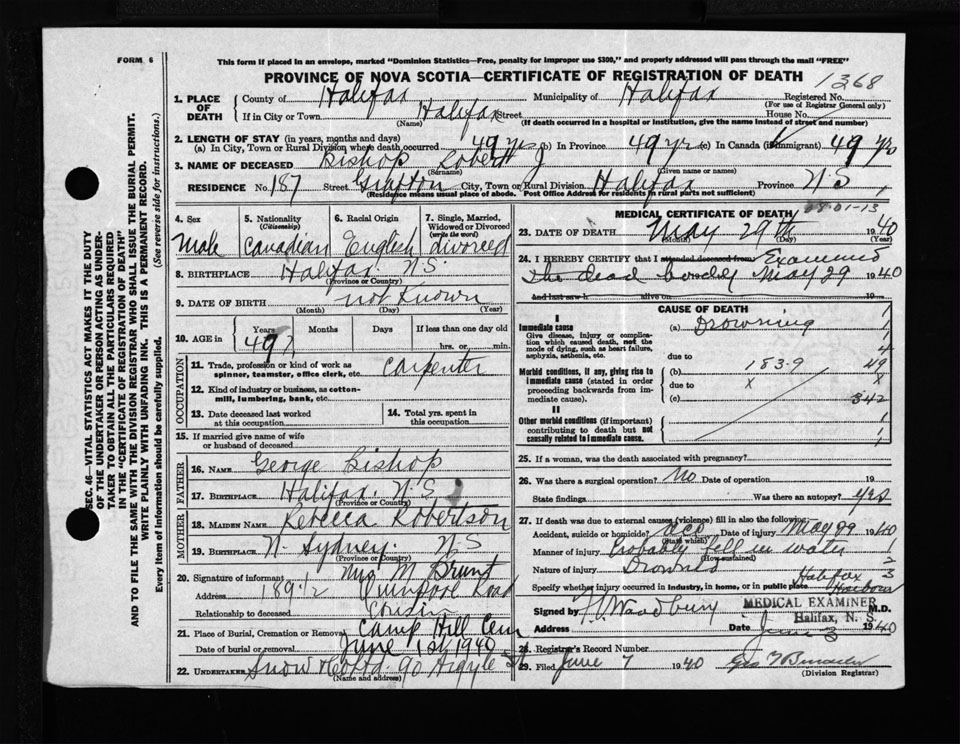 FORM 6
This form if placed in an envelope, marked "Dominion Statistics—Free, penalty for improper use $300," and properly addressed will pass through the mail "FREE"
PROVINCE OF NOVA SCOTIA—CERTIFICATE OF REGISTRATION OF DEATH
1368
1. PLACE OF DEATH
County of Halifax Municipality of Halifax Registered No.
(For use of Registrar General only)
If in City or Town Halifax Street House No.
(Name) (If death occurred in a hospital or institution, give the name instead of street and number)
2. LENGTH OF STAY (in years, months and days)
(a) In City, Town or Rural Division where death occurred 49 yrs (b) In Province 49 yr (c) In Canada (if immigrant) 49 yrs
3. NAME OF DECEASED Bishop Robert J
(Surname) (Given name or names)
RESIDENCE No. 187 Street Grafton City, Town or Rural Division Halifax Province N.S
(Residence means usual place of abode. Post Office Address for residents in rural parts not sufficient)
4. Sex
Male
5. Nationality
(Citizenship)
Canadian
6. Racial Origin
English
7. Single, Married, Widowed or Divorced
(write the word)
divorced
8. BIRTHPLACE Halifax N.S.
(Province or Country)
9. DATE OF BIRTH not known
(Month) (Day) (Year)
10. AGE in
Years Months Days If less than one day old
49 hrs. or min.
OCCUPATION
11. Trade, profession or kind of work as spinner, teamster, office clerk, etc. Carpenter
12. Kind of industry or business, as cotton-mill, lumbering, bank, etc.
13. Date deceased last worked at this occupation
14. Total yrs. spent in this occupation
15. If married give name of wife or husband of deceased
FATHER
16. NAME George Bishop
17. BIRTHPLACE Halifax N.S
(Province or Country)
MOTHER
18. MAIDEN NAME Rebecca Robertson
19. BIRTHPLACE N. Sydney. N.S
(Province or Country)
20. Signature of informant Mrs M Brunt
Address 189 1/2 Quinpool Road
Relationship to deceased Cousin
21. Place of Burial, Cremation or Removal Camp Hill Cem
Date of burial or removal June 1st 1940
22. UNDERTAKER Snow & Co Ltd. 90 Argyle St
(Name and address)
MEDICAL CERTIFICATE OF DEATH
08-01-13
23. DATE OF DEATH May 29th 1940
(Month) (Day) (Year)
24. I HEREBY CERTIFY that I attended deceased from Examined
the dead body May 29 1940
And last saw h alive on 19
CAUSE OF DEATH
I
Immediate cause (a) Drowning
Give disease, injury or complication which caused death, not the mode of dying, such as heart failure, asphyxia, asthenia, etc.
due to
Morbid conditions, if any, giving rise to immediate cause (stated in order proceeding backwards from immediate cause). (b) 183.9 49
due to X
(c) 342
II
Other morbid conditions (if important) contributing to death but not causally related to immediate cause.
25. If a woman, was the death associated with pregnancy?
26. Was there a surgical operation? No Date of operation 19
State findings Was there an autopsy? yes
27. If death was due to external causes (violence) fill in also the following.
Accident, suicide or homicide? acc Date of injury May 29 1940
(State which)
Manner of injury Probably fell in water
(How sustained)
Nature of injury Drowned
Specify whether injury occurred in industry, in home, or in public place Halifax Harbour
Signed by Woodbury M.D.
MEDICAL EXAMINER
Halifax, N. S.
Address Date June 3 1940
28. Registrar's Record Number
29. Filed June 7 1940 Geo
(Division Registrar)
SEC. 46—VITAL STATISTICS ACT MAKES IT THE DUTY OF THE UNDERTAKER OR PERSON ACTING AS UNDERTAKER TO OBTAIN ALL THE PARTICULARS REQUIRED IN THE "CERTIFICATE OF REGISTRATION OF DEATH"
AND TO FILE THE SAME WITH THE DIVISION REGISTRAR WHO SHALL ISSUE THE BURIAL PERMIT.
WRITE PLAINLY WITH UNFADING INK. THIS IS A PERMANENT RECORD.
Every item of Information should be carefully supplied. (See reverse side for instructions.)